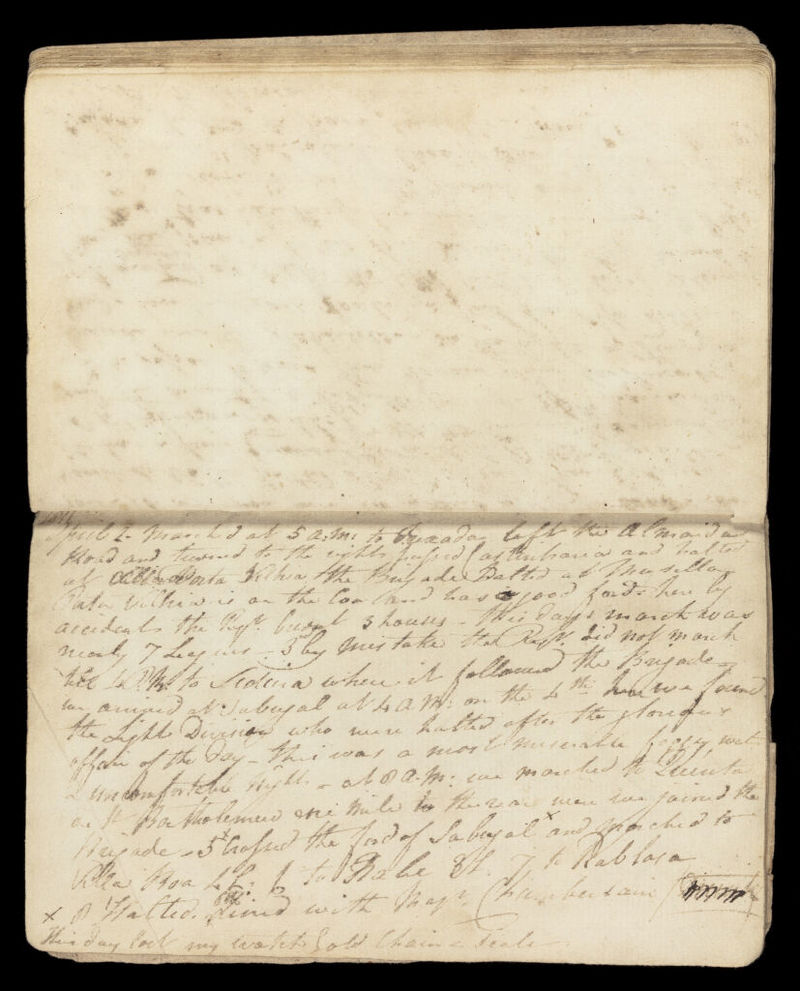 1811
April 2. Marched at 5 a.m. to left the Almaida
Road and turned to the right passed and halted
at the Brigade Halted at Musella
Villia is on the Coa and has a good ford - here by
accident the Regt. burnt 3 houses - this days march was
nearly 7 Leagues - 3 by mistake the Regt. did not march
till 4 P.M. to where it followed the Brigade -
we arrived at Sabugal at 4 A.M. on the 4th here we found
the Light Division who were halted after the glorious
affair of the day - this was a most miserable foggy wet
& uncomfortable night - at 8 a.m. we marched to Quinta
de St Bartholemew one mile to the rear were we joined the
Brigade - 5 x Crossed the ford of Sabugal x and marched to
Villa Boa 6 to 7 to Rablosa
8 Halted. Dined with Chamberlain
x This day lost my watch Gold Chain & Seals